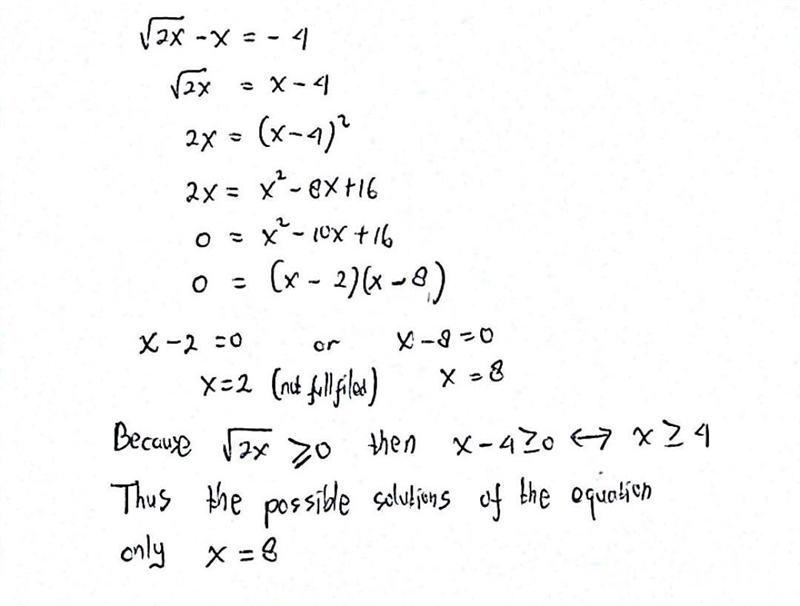 √2x - x = - 4
√2x = x - 4
2x = (x-4)²
2x = x² - 8x + 16
0 = x² - 10x + 16
0 = (x - 2)(x - 8)
x - 2 = 0 or x - 8 = 0
x = 2 (not fullfiled) x = 8
Because √2x ≥ 0 then x - 4 ≥ 0 ↔ x ≥ 4
Thus the possible solutions of the equation
only x = 8